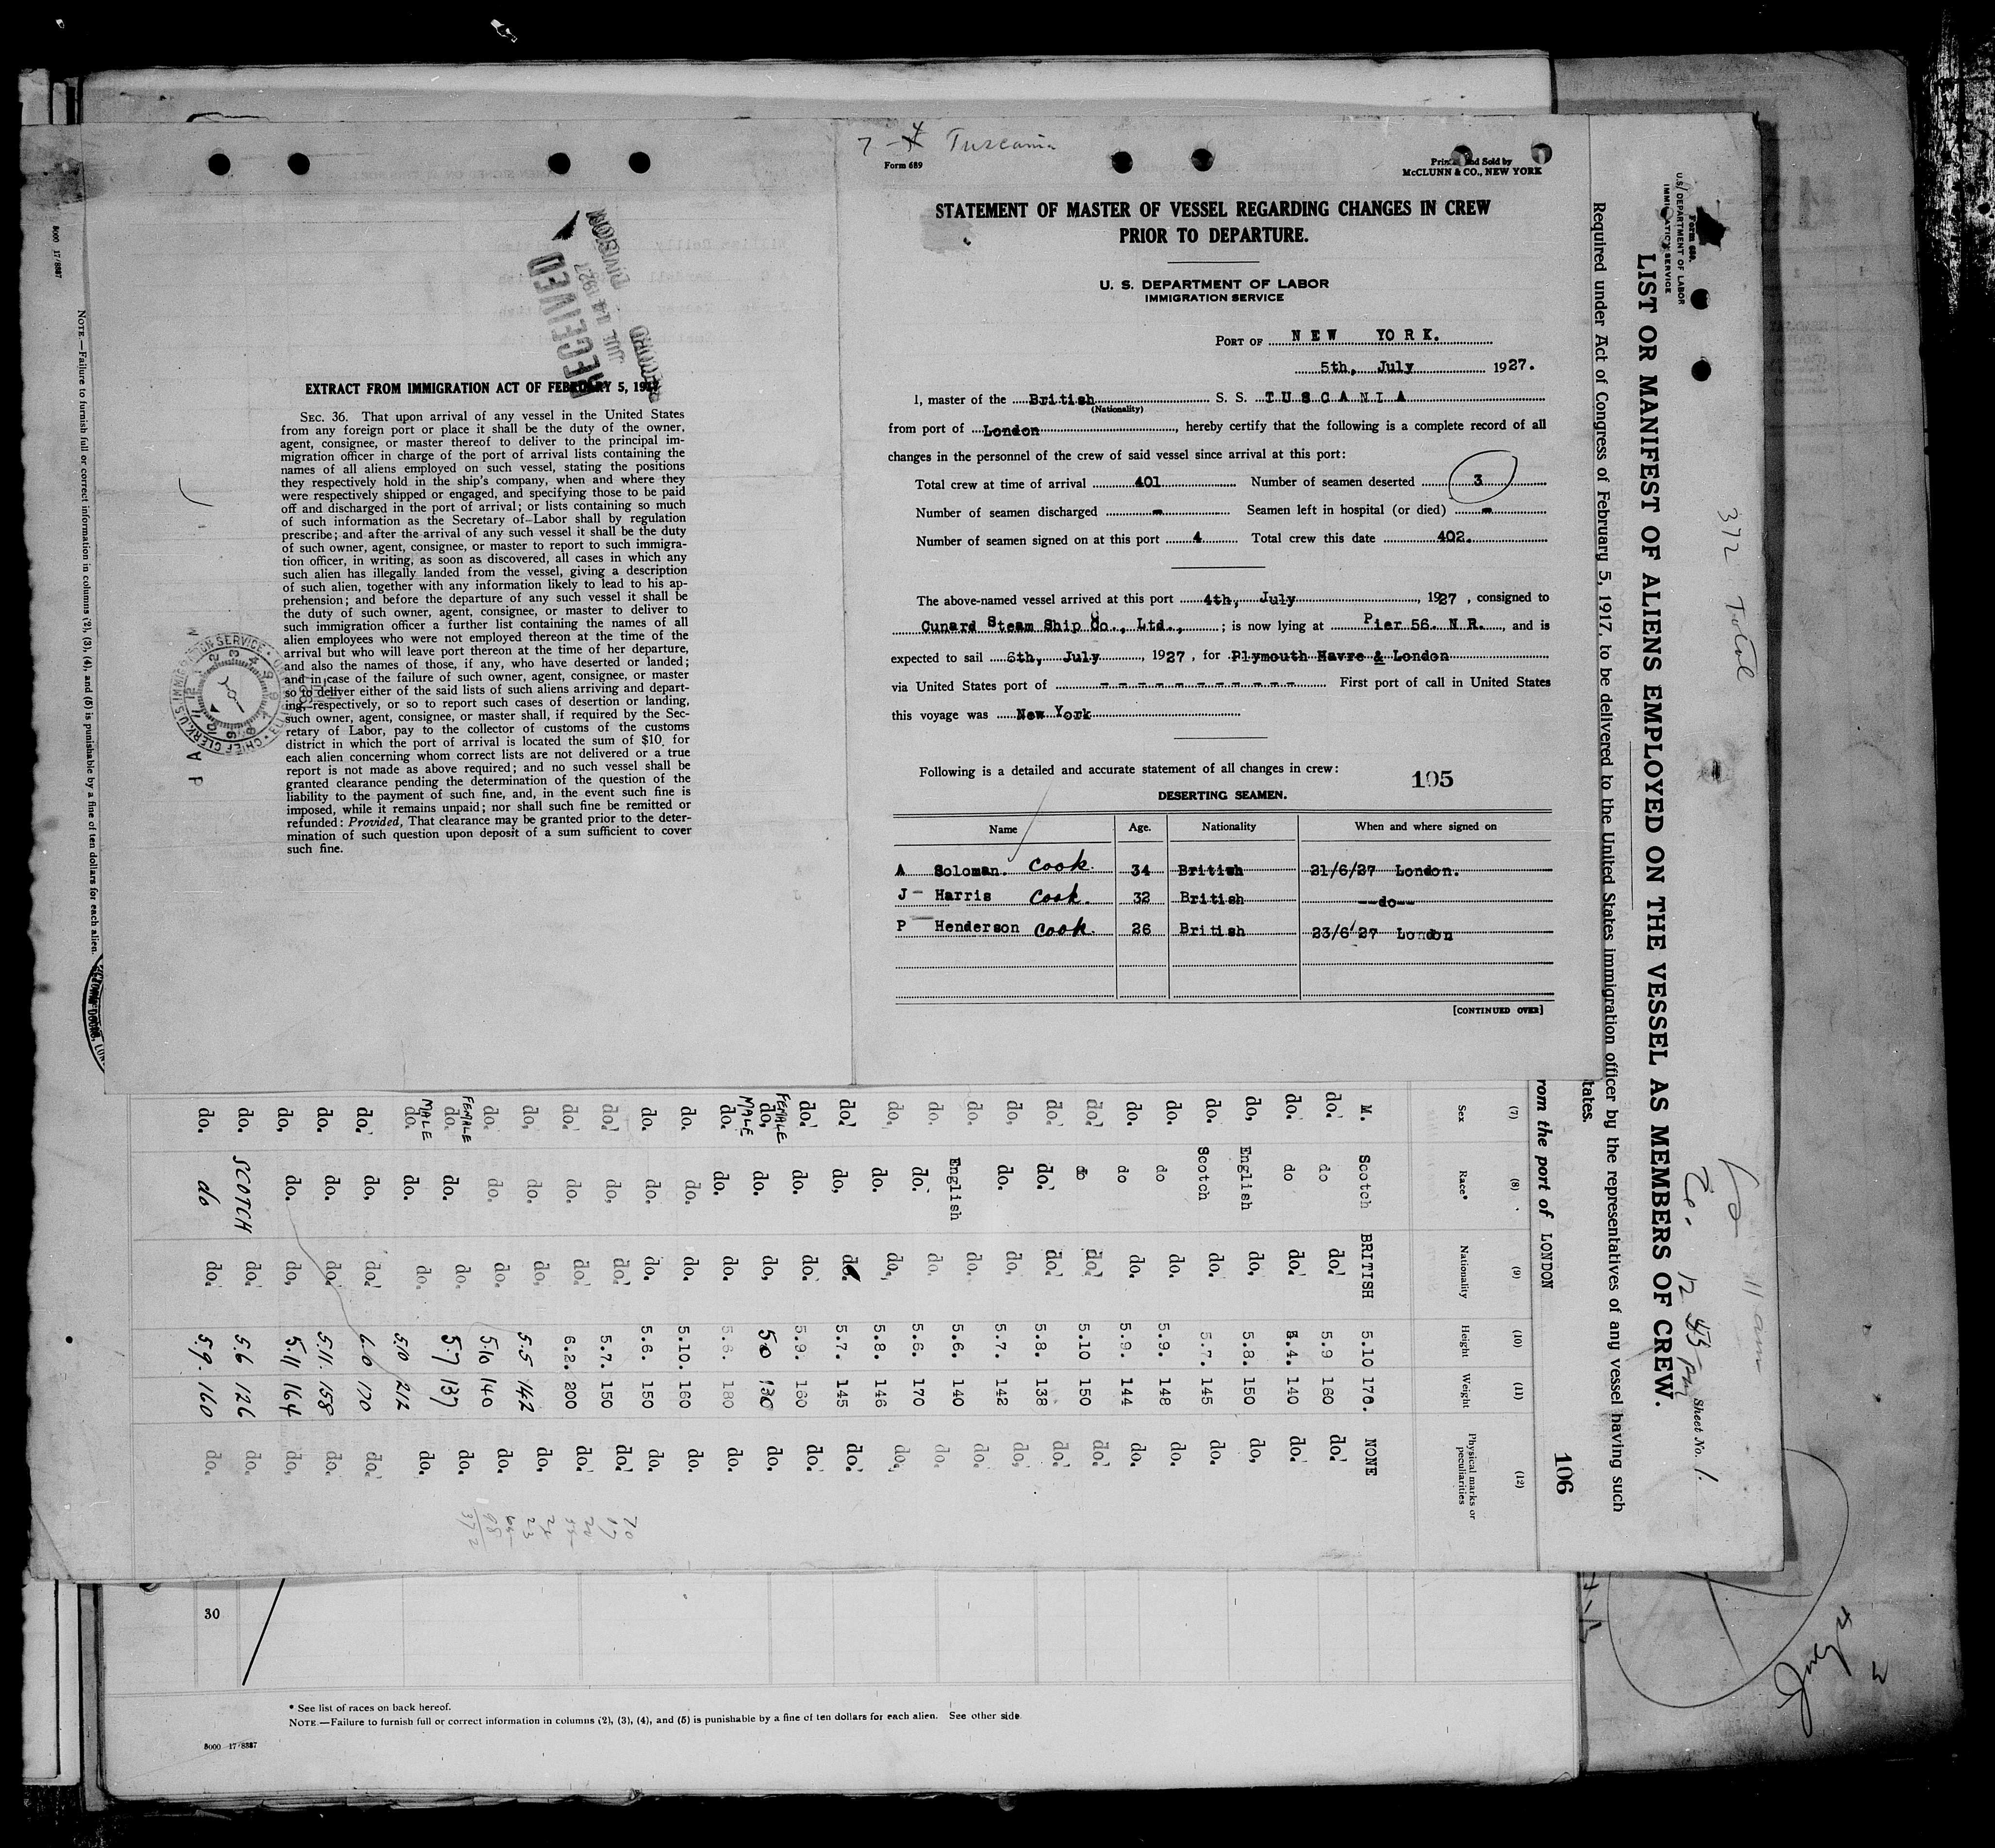 7-4 Tuscania
Form 689
Printed and Sold by
McCLUNN & CO., NEW YORK
STATEMENT OF MASTER OF VESSEL REGARDING CHANGES IN CREW
PRIOR TO DEPARTURE.
U. S. DEPARTMENT OF LABOR
IMMIGRATION SERVICE
PORT OF NEW YORK.
5th, July 1927.
I, master of the British S. S. TUSCANIA
(Nationality)
from port of London, hereby certify that the following is a complete record of all
changes in the personnel of the crew of said vessel since arrival at this port:
Total crew at time of arrival 401 Number of seamen deserted 3
Number of seamen discharged - Seamen left in hospital (or died) -
Number of seamen signed on at this port 4 Total crew this date 402.
The above-named vessel arrived at this port 4th, July, 1927, consigned to
Cunard Steam Ship Co., Ltd., ; is now lying at Pier 56. N R., and is
expected to sail 6th, July, 1927, for Plymouth Havre & London
via United States port of - - - - - - - - - - First port of call in United States
this voyage was New York
Following is a detailed and accurate statement of all changes in crew:
105
DESERTING SEAMEN.
Name Age. Nationality When and where signed on
A Soloman. cook. 34 British 21/6/27 London.
J - Harris cook. 32 British --do--
P Henderson cook. 26 British 23/6/27 London
[CONTINUED OVER]
RECEIVED
JUL 14 1927
RECORD DIVISION
EXTRACT FROM IMMIGRATION ACT OF FEBRUARY 5, 1917
SEC. 36. That upon arrival of any vessel in the United States
from any foreign port or place it shall be the duty of the owner,
agent, consignee, or master thereof to deliver to the principal im-
migration officer in charge of the port of arrival lists containing the
names of all aliens employed on such vessel, stating the positions
they respectively hold in the ship's company, when and where they
were respectively shipped or engaged, and specifying those to be paid
off and discharged in the port of arrival; or lists containing so much
of such information as the Secretary of Labor shall by regulation
prescribe; and after the arrival of any such vessel it shall be the duty
of such owner, agent, consignee, or master to report to such immigra-
tion officer, in writing, as soon as discovered, all cases in which any
such alien has illegally landed from the vessel, giving a description
of such alien, together with any information likely to lead to his ap-
prehension; and before the departure of any such vessel it shall be
the duty of such owner, agent, consignee, or master to deliver to
such immigration officer a further list containing the names of all
alien employees who were not employed thereon at the time of the
arrival but who will leave port thereon at the time of her departure,
and also the names of those, if any, who have deserted or landed;
and in case of the failure of such owner, agent, consignee, or master
so to deliver either of the said lists of such aliens arriving and depart-
ing, respectively, or so to report such cases of desertion or landing,
such owner, agent, consignee, or master shall, if required by the Sec-
retary of Labor, pay to the collector of customs of the customs
district in which the port of arrival is located the sum of $10 for
each alien concerning whom correct lists are not delivered or a true
report is not made as above required; and no such vessel shall be
granted clearance pending the determination of the question of the
liability to the payment of such fine, and, in the event such fine is
imposed, while it remains unpaid; nor shall such fine be remitted or
refunded: Provided, That clearance may be granted prior to the deter-
mination of such question upon deposit of a sum sufficient to cover
such fine.
Form 680.
U.S. DEPARTMENT OF LABOR
IMMIGRATION SERVICE
372 Total
11 am
12 45 pm
Sheet No. 1.
LIST OR MANIFEST OF ALIENS EMPLOYED ON THE VESSEL AS MEMBERS OF CREW.
Required under Act of Congress of February 5, 1917, to be delivered to the United States immigration officer by the representatives of any vessel having such
tates.
rom the port of LONDON
106
(7) (8) (9) (10) (11) (12)
Sex Race* Nationality Height Weight Physical marks or peculiarities
M. Scotch BRITISH 5.10 170. NONE
do. do do. 5.9 160 do.
do. do do. 5.4. 140 do.
do, English do, 5.8. 150 do,
do. Scotch do. 5.7. 145 do.
do. do do. 5.9. 148 do.
do. do do. 5.9. 144 do.
do. do do. 5.10 150 do.
do. do. do. 5.8. 138 do.
do, do. do, 5.7. 142 do,
do. English do. 5.6. 140 do.
do. do. do. 5.6. 170 do.
do. do. do, 5.8. 146 do,
do. do, do. 5.7. 145 do.
do. do. do. 5.9. 160 do.
FEMALE do, do. do, 5 0 130 do,
MALE do. do. do. 5.6. 180 do.
do. do. do. 5.10. 160 do.
do. do. do. 5.6. 150 do.
do. do, do. 5.7. 150 do.
do. do, do. 6.2. 200 do.
do. do. do, 5.5 142 do.
do. do. do. 5.10 140 do.
FEMALE do. do. do. 5.7 137 do.
MALE do. do. do. 5.10 212 do.
do. do, do. 6.0 170 do.
do. do. do. 5.11. 158 do.
do, do. do, 5.11 164 do,
do. SCOTCH do. 5.6 126 do.
do. do do. 5.9. 160 do.
70
17
20
24
23
68
372
NOTE.—Failure to furnish full or correct information in columns (2), (3), (4), and (5) is punishable by a fine of ten dollars for each alien.
5000 17/8387
30
* See list of races on back hereof.
NOTE.—Failure to furnish full or correct information in columns (2), (3), (4), and (5) is punishable by a fine of ten dollars for each alien. See other side.
5000 17/8387
July 4